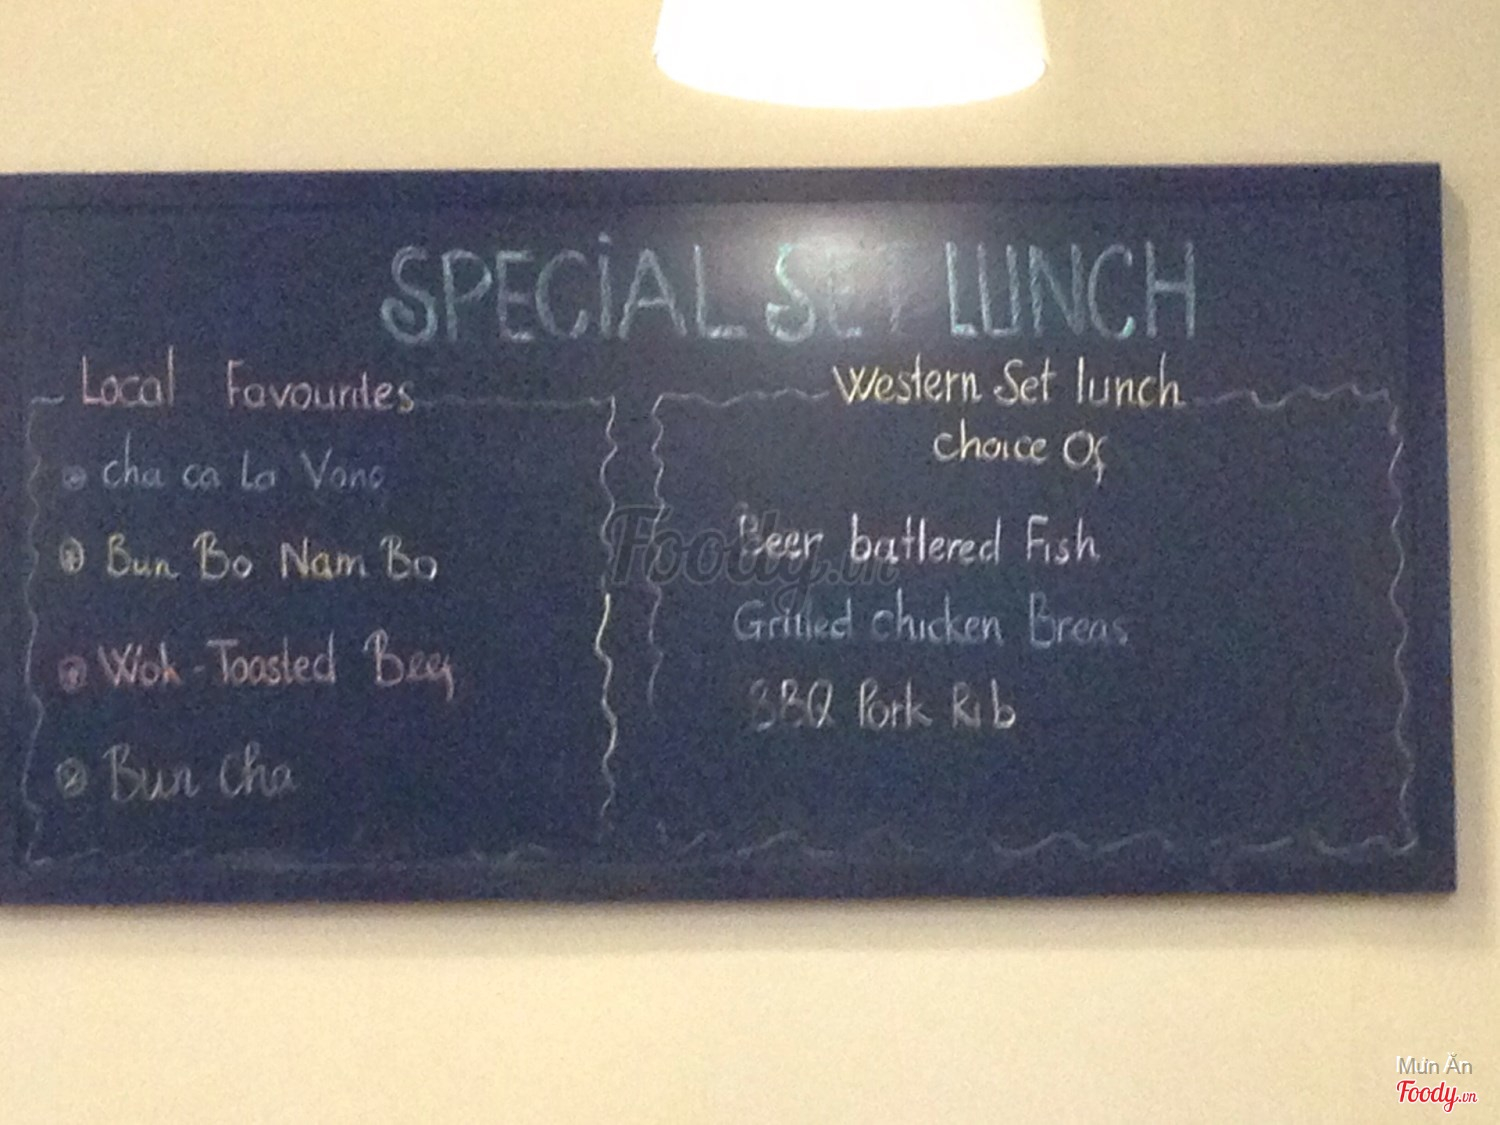 SPECiAL SET LUNCH
Local Favourites
cha ca La Vong
Bun Bo Nam Bo
Wok-Toasted Beef
Bun cha
Western Set lunch
choice Of
Beer battered Fish
Grilled chicken Breas
BBQ Pork Rib
Foody.vn
Mưn Ăn
Foody.vn